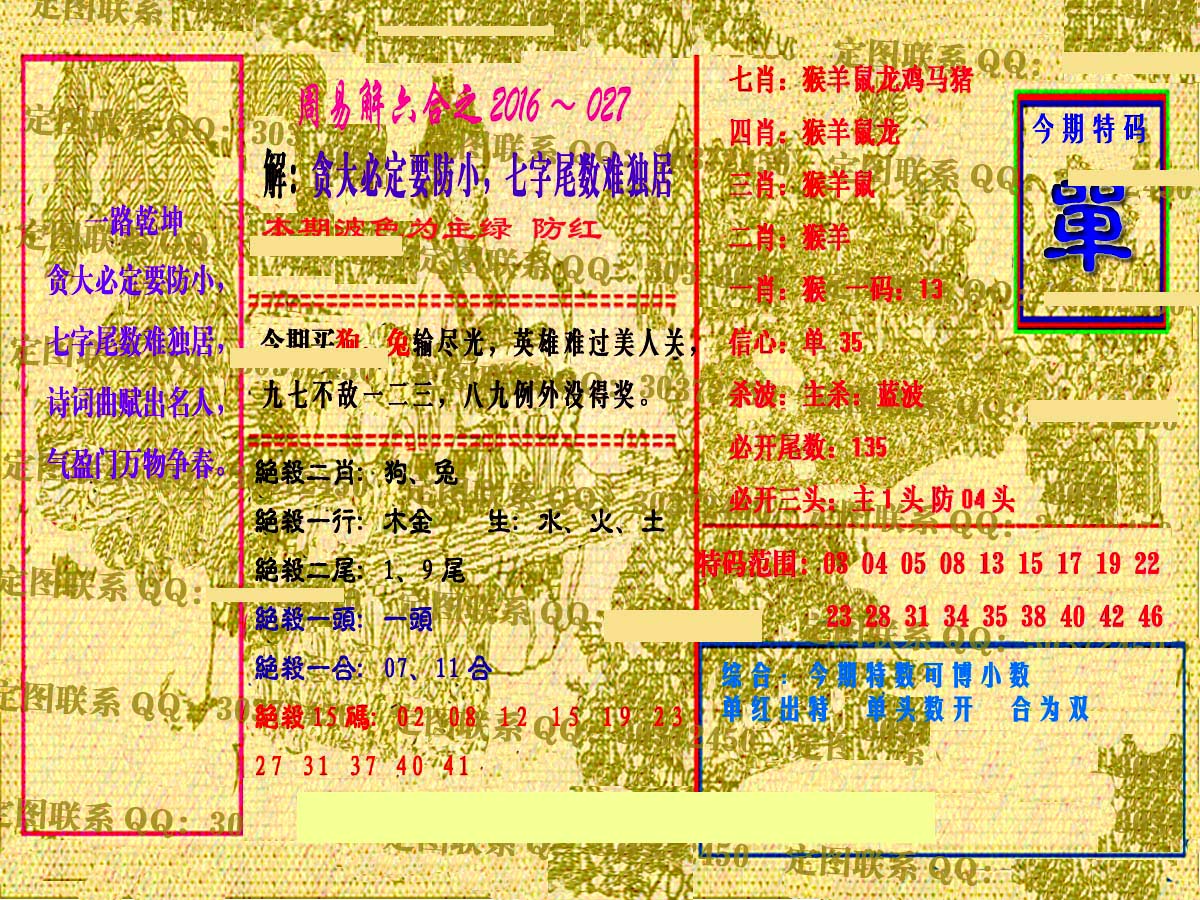 一路乾坤
贪大必定要防小，
七字尾数难独居，
诗词曲赋出名人，
气盈门万物争春。
周易解六合之 2016 ～ 027
解：贪大必定要防小，七字尾数难独居
本期波色为主绿 防红
今期买狗 兔输尽光，英雄难过美人关，
九七不敌一二三，八九例外没得奖。
絕殺二肖：狗、兔
絕殺一行：木金 生：水、火、土
絕殺二尾：1、9 尾
絕殺一頭：一頭
絕殺一合：07、11 合
絕殺 15 碼：02 08 12 15 19 23
27 31 37 40 41
七肖：猴羊鼠龙鸡马猪
四肖：猴羊鼠龙
三肖：猴羊鼠
二肖：猴羊
一肖：猴 一码：13
信心：单 35
杀波：主杀：蓝波
必开尾数：135
必开三头：主 1 头 防 04 头
今期特码
單
特码范围：03 04 05 08 13 15 17 19 22
23 28 31 34 35 38 40 42 46
综合：今期特数可博小数
单红出特 单头数开 合为双
定图联系 QQ：